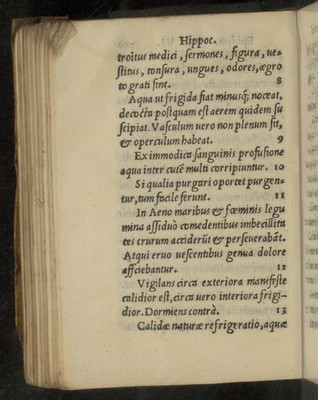 Hippoc.
troitus medici, sermones, figura, ue-
stitus, tonsura, ungues, odores, ægro
to grati sint. 8
Aqua ut frigida fiat minusq; noceat,
decocta postquam est aerem quidem su
scipiat. Vasculum uero non plenum sit,
& operculum habeat. 9
Ex immodica sanguinis profusione
aqua inter cutē multi corripiuntur. 10
Si qualia purgari oportet purgen-
tur, tum facile ferunt. 11
In Aeno maribus & fœminis legu
mina assiduò comedentibus imbecillita
tes crurum acciderūt & perseuerabāt.
Atqui eruo uescentibus genua dolore
afficiebantur. 12
Vigilans circa exteriora manifeste
calidior est, circa uero interiora frigi-
dior. Dormiens contrà. 13
Calidæ naturæ refrigeratio, aquæ